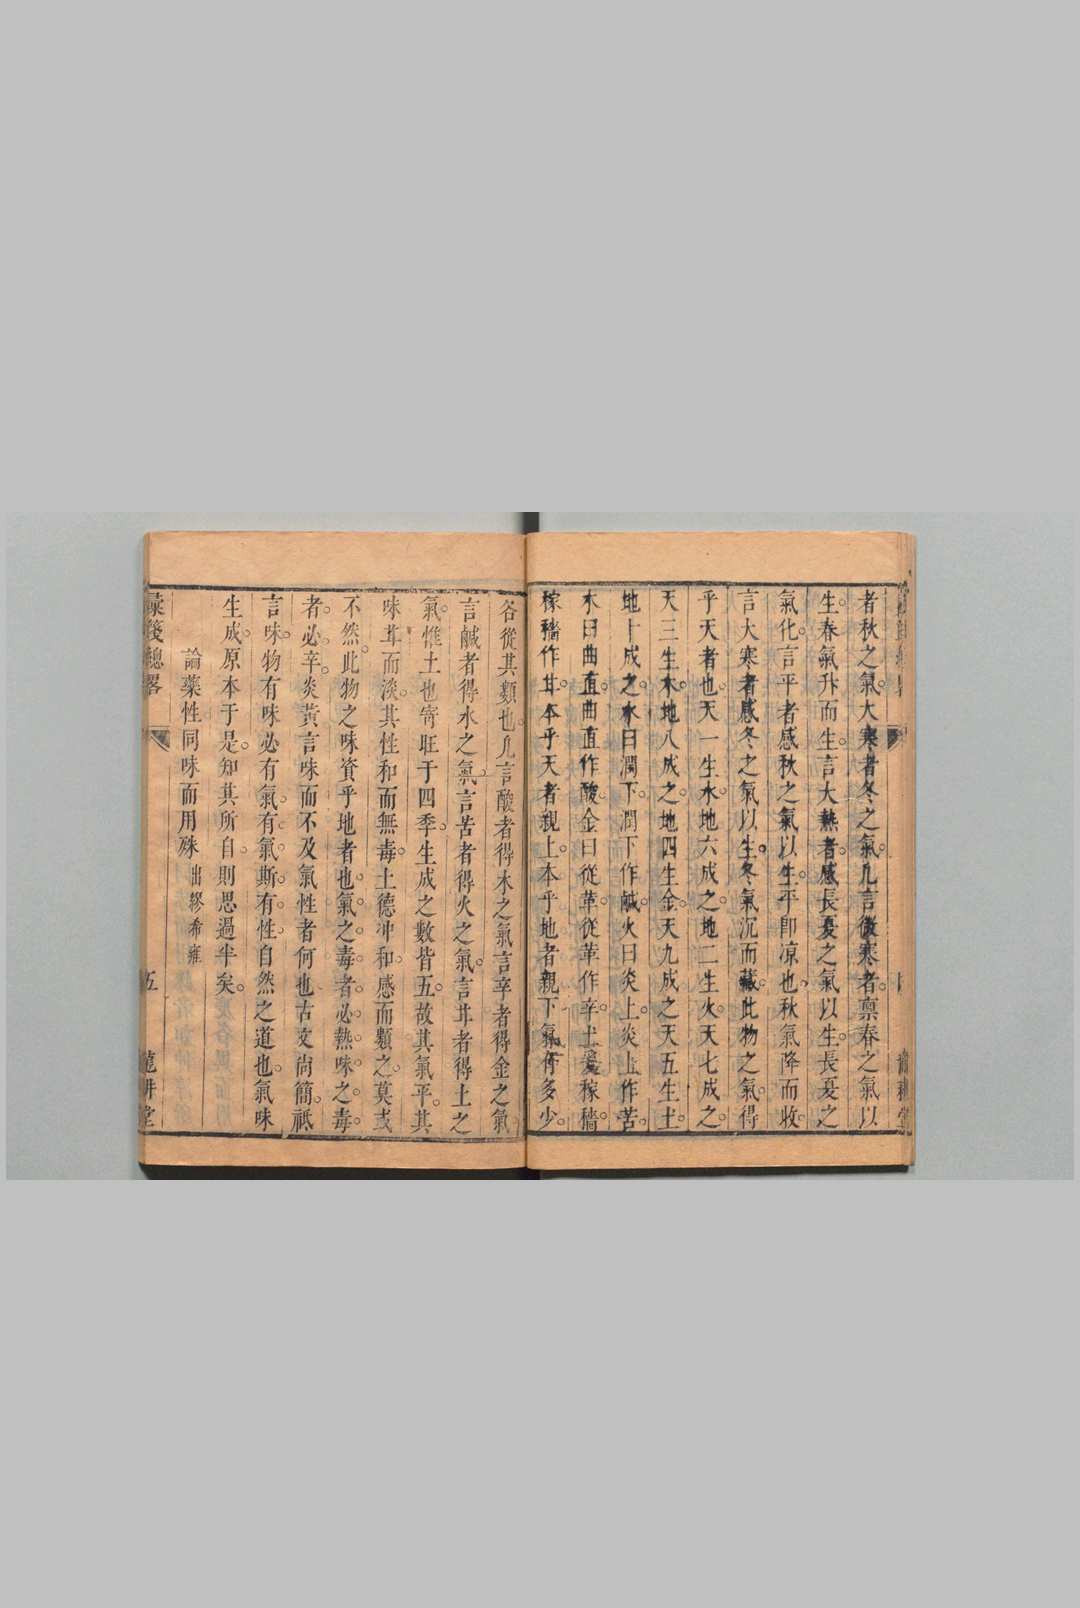 者秋之氣。大寒者冬之氣。凡言微寒者。禀春之氣以
生。春氣升而生。言大熱者。感長夏之氣以生。長夏之
氣化。言平者感秋之氣以生。平卽凉也。秋氣降而收。
言大寒者感冬之氣以生。冬氣沉而藏。此物之氣得
乎天者也。天一生水。地六成之。地二生火。天七成之。
天三生木。地八成之。地四生金。天九成之。天五生土。
地十成之。水曰潤下。潤下作鹹。火曰炎上。炎上作苦。
木曰曲直。曲直作酸。金曰從革。從革作辛。土爰稼穡。
稼穡作甘。本乎天者親上。本乎地者親下。氣
多少。
各從其類也。凡言酸者得木之氣。言辛者得金之氣。
言鹹者得水之氣。言苦者得火之氣。言甘者得土之
氣。惟土也寄旺于四季。生成之數皆五。故其氣平。其
味甘而淡。其性和而無毒。土德冲和。感而類之。莫或
不然。此物之味資乎地者也。氣之毒者必熱。味之毒
者。必辛。炎黃言味而不及氣性者何也。古文尙簡。祇
言味。物有味必有氣。有氣斯有性。自然之道也。氣味
生成。原本于是。知其所自。則思過半矣。
論藥性同味而用殊
繆希雍
箋總畧
五